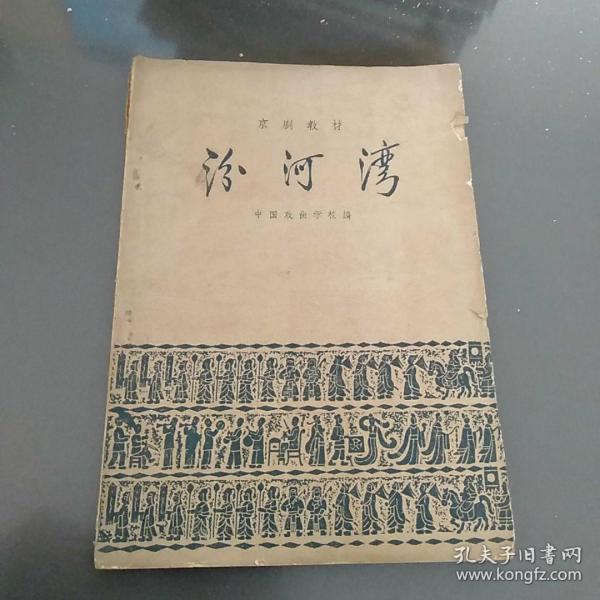 京剧教材
汾河湾
中国戏曲学校编
孔夫子旧书网
www.kongfz.com